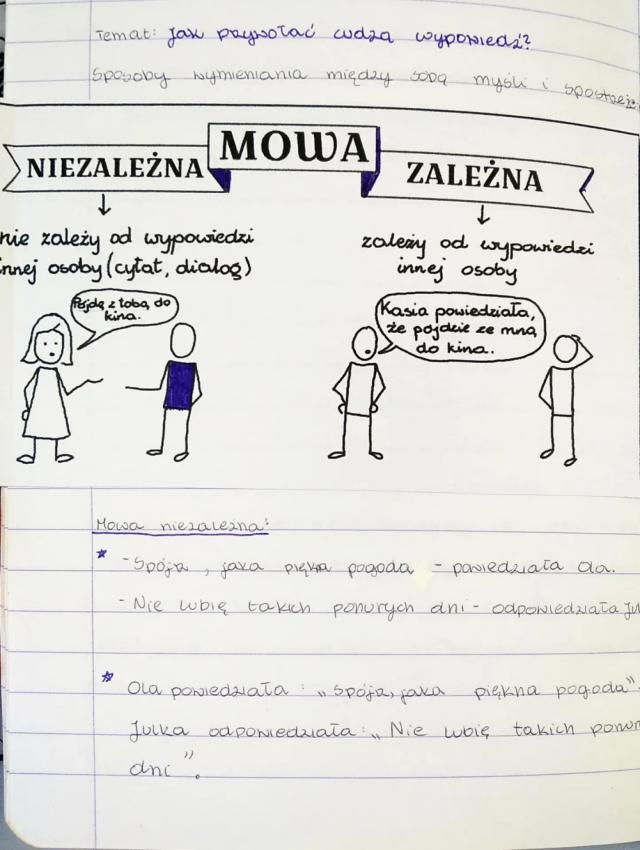 Temat: Jak przywołać cudzą wypowiedź?
Sposoby wymieniania między sobą myśli i
MOWA
NIEZALEŻNA
ZALEŻNA
nie zależy od wypowiedzi
innej osoby (cytat, dialog)
zależy od wypowiedzi
innej osoby
Pójdę z tobą do
kina.
Kasia powiedziała,
że pójdzie ze mną
do kina.
Mowa niezależna:
* - Spójrz, jaka piękna pogoda - powiedziała Ola.
- Nie lubię takich ponurych dni - odpowiedziała
* Ola powiedziała: „Spójrz, jaka piękna pogoda"
Julka odpowiedziała: „Nie lubię takich
dni".